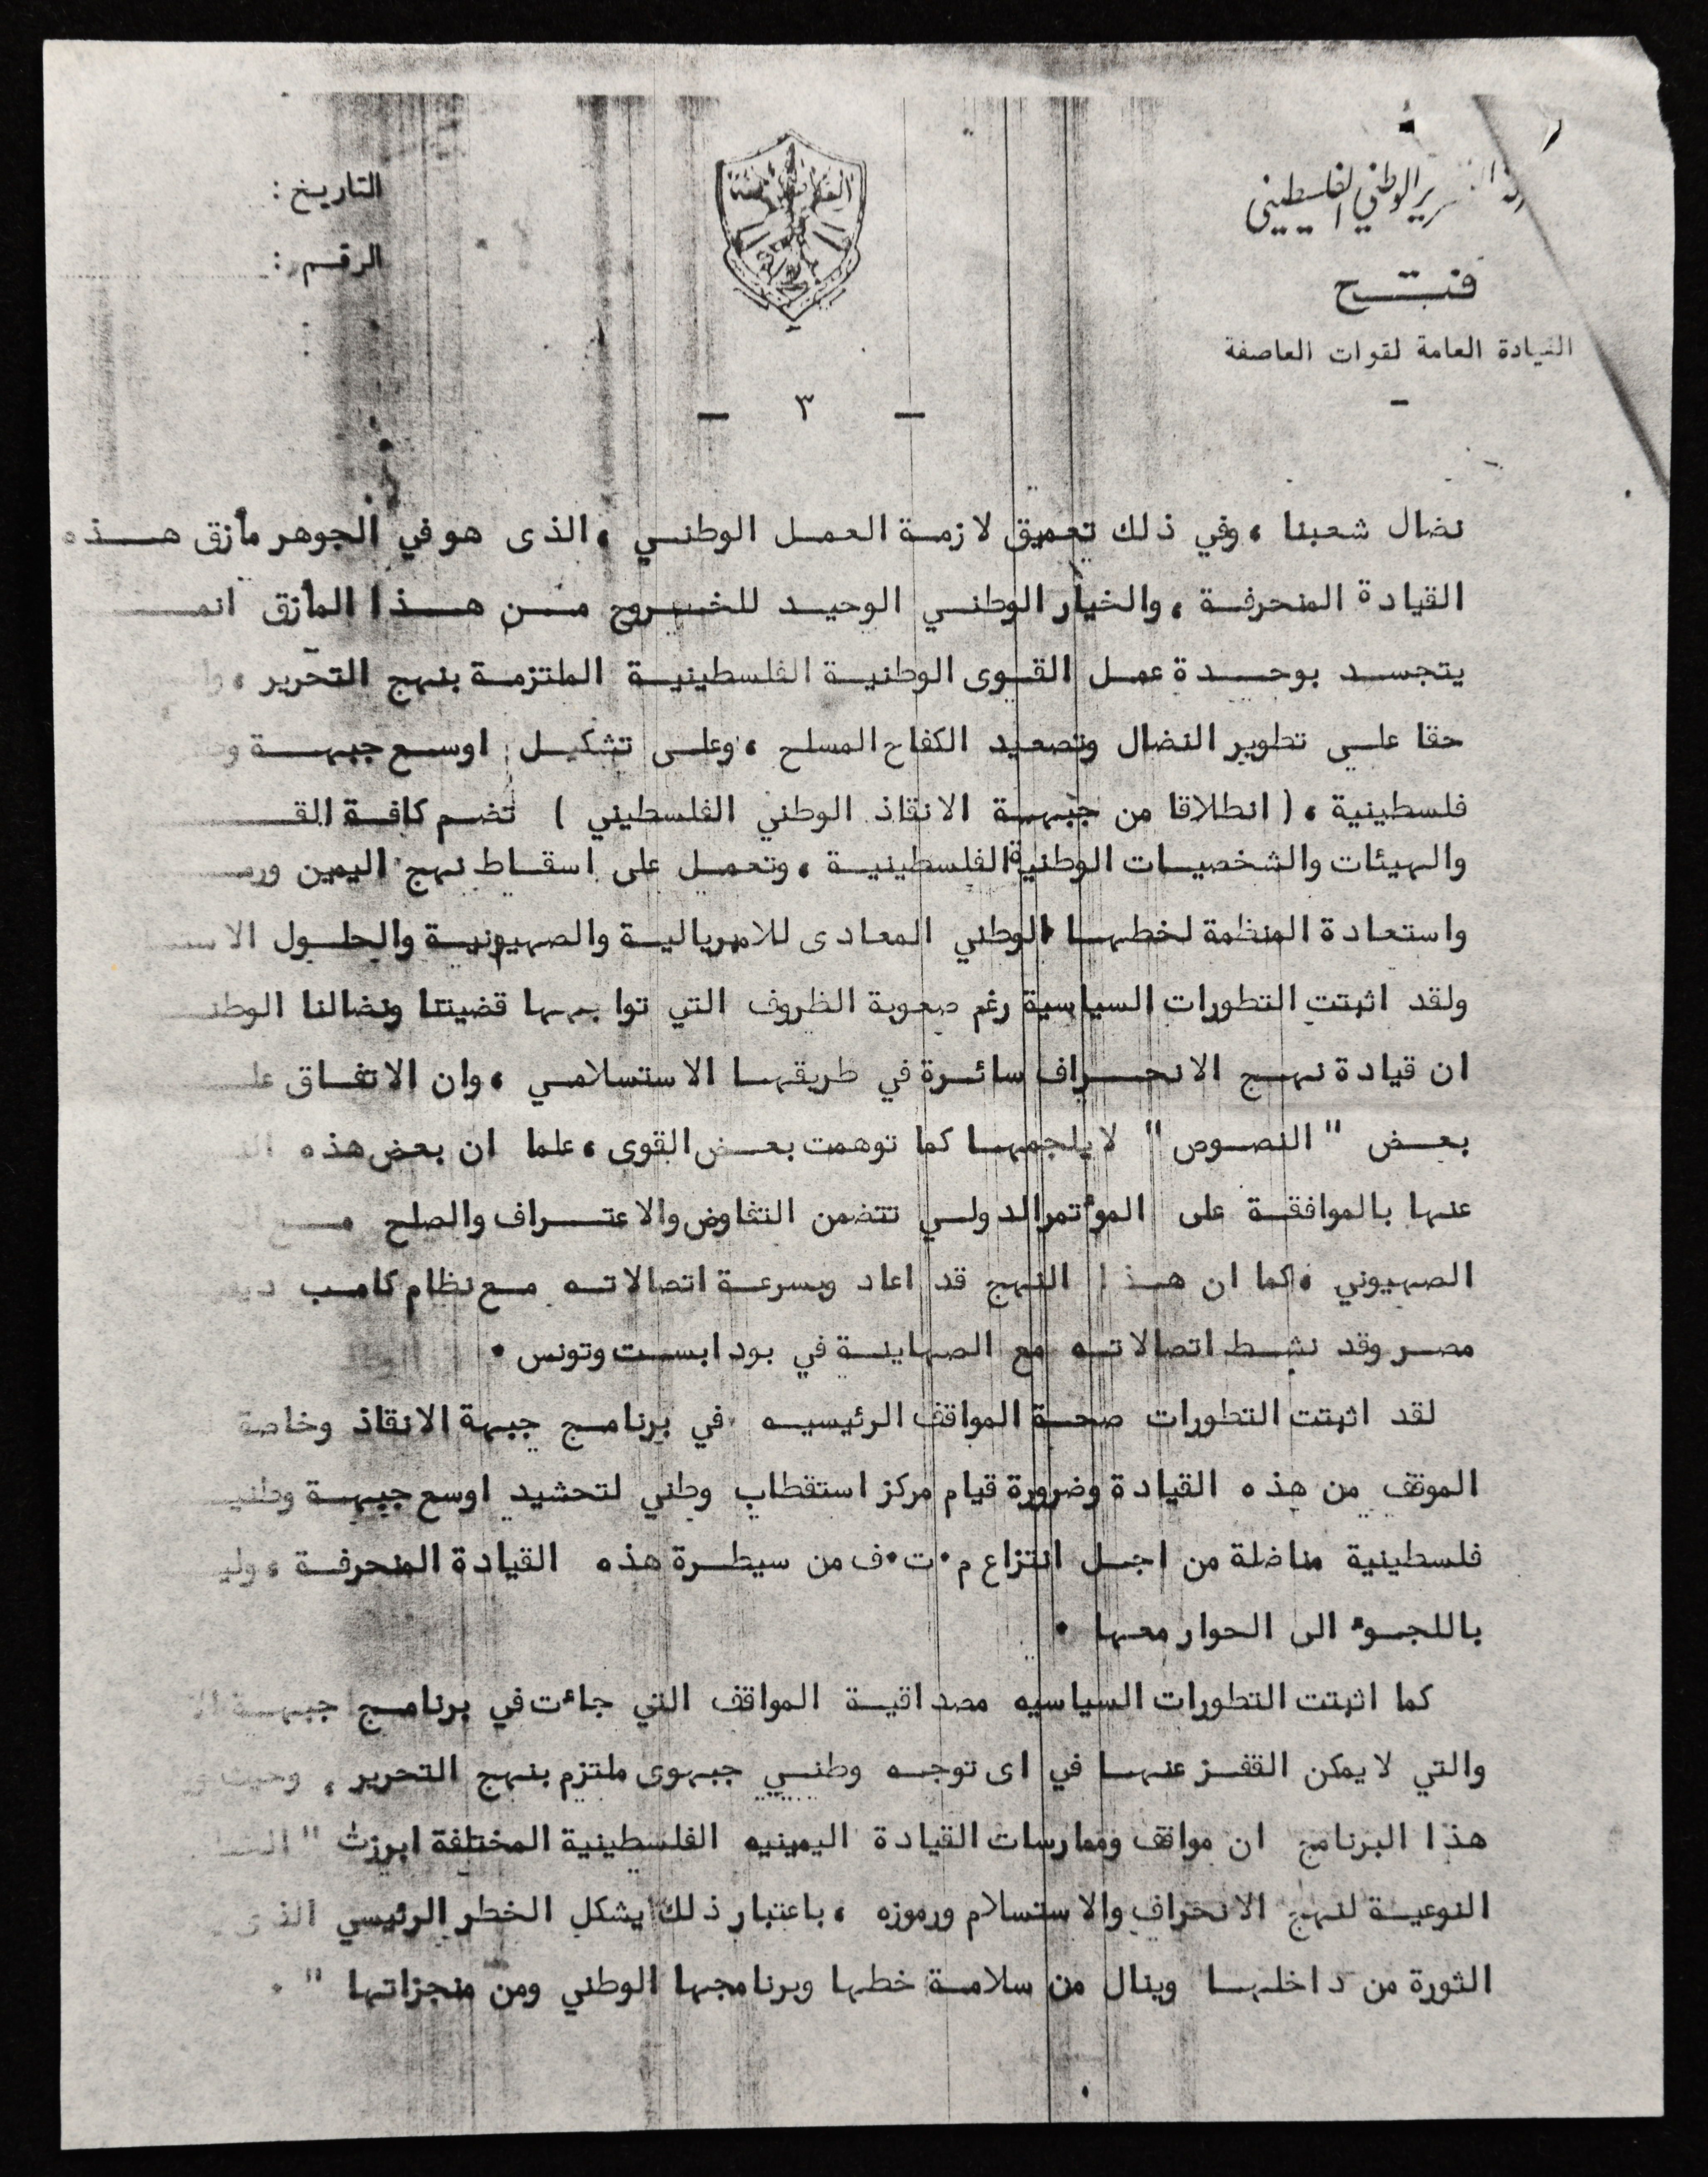 الوطني الفلسطيني
فتح
القيادة العامة لقوات العاصفة
التاريخ :
الرقم :
— ٣ —
نضال شعبنا ، وفي ذلك تعميق لازمة العمل الوطني ، الذى هو في الجوهر مأزق هذه
القيادة المنحرفة ، والخيار الوطني الوحيد للخروج من هذا المأزق
يتجسد بوحدة عمل القوى الوطنية الفلسطينية الملتزمة بنهج التحرير ،
حقا على تطوير النضال وتصعيد الكفاح المسلح ، وعلى تشكيل اوسع جبهة
فلسطينية ، ( انطلاقا من جبهة الانقاذ الوطني الفلسطيني ) تضم كافة
والهيئات والشخصيات الوطنية الفلسطينية ، وتعمل على اسقاط نهج اليمين
واستعادة المنظمة لخطها الوطني المعادى للامبريالية والصهيونية والحلول
ولقد اثبتت التطورات السياسية رغم صعوبة الظروف التي قضيتنا ونضالنا
ان قيادة نهج الانحراف سائرة في طريقها الاستسلامي ، وان الاتفاق
بعض " النصوص " لا يلجمها كما توهمت بعض القوى ، علما ان بعض هذه
عنها بالموافقة على المؤتمر الدولي تتضمن التفاوض والاعتراف والصلح مع
الصهيوني ، كما ان هذا النهج قد اعاد وبسرعة اتصالاته مع نظام كامب
مصر وقد نشط اتصالاته مع الصهاينة في بودابست وتونس .
لقد اثبتت التطورات صحة المواقف الرئيسيه في برنامج جبهة الانقاذ وخاصة
الموقف من هذه القيادة وضرورة قيام مركز استقطاب وطني لتحشيد اوسع جبهة
فلسطينية مناضلة من اجل انتزاع م.ت.ف من سيطرة هذه القيادة المنحرفة ،
باللجوء الى الحوار معها .
كما اثبتت التطورات السياسيه مصداقية المواقف التي جاءت في برنامج جبهة
والتي لا يمكن القفز عنها في اى توجه وطني جبهوى ملتزم بنهج التحرير ,
هذا البرنامج ان مواقف وممارسات القيادة اليمينيه الفلسطينية المختلفة ابرزت "
النوعية لنهج الانحراف والاستسلام ورموزه ، باعتبار ذلك يشكل الخطر الرئيسي
الثورة من داخلها وينال من سلامة خطها وبرنامجها الوطني ومن منجزاتها " .